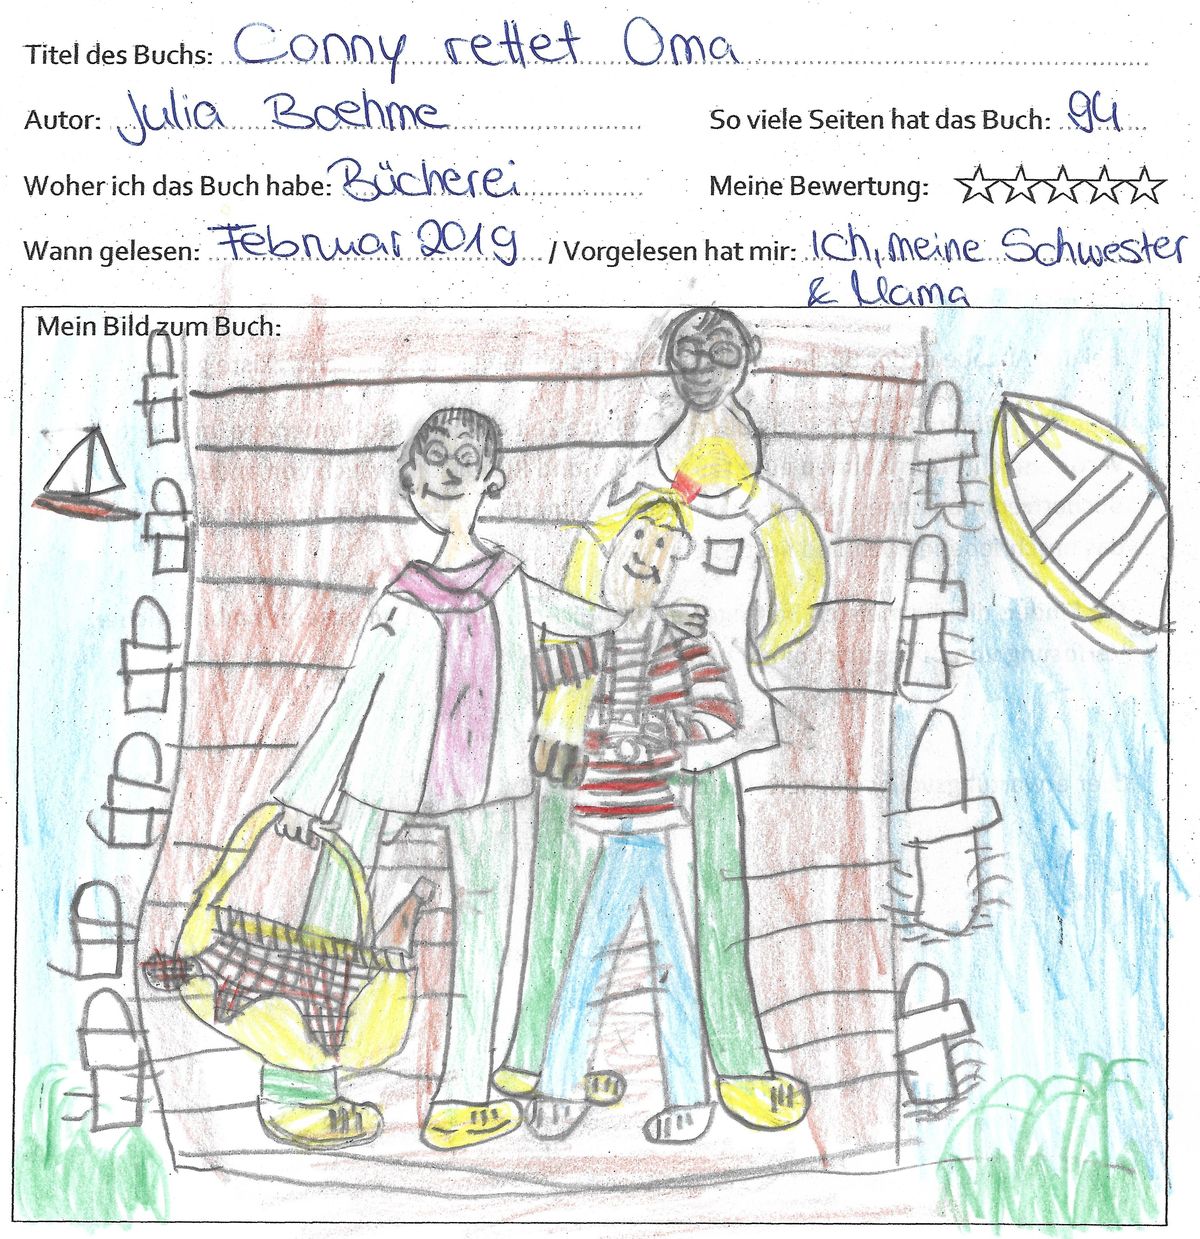 Titel des Buchs: Conny rettet Oma
Autor: Julia Boehme So viele Seiten hat das Buch: 94
Woher ich das Buch habe: Bücherei Meine Bewertung:
Wann gelesen: Februar 2019 / Vorgelesen hat mir: Ich, meine Schwester
& Mama
Mein Bild zum Buch: